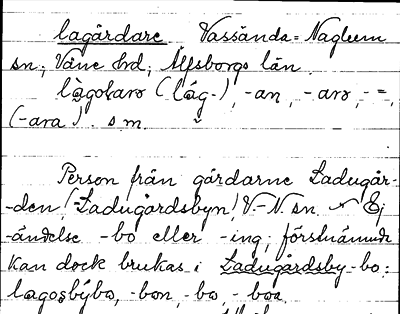 lagårdare. Vassända=Naglum
sn; Väne hrd; Älfsborgs län.
(låg-), -an, -arə, -=,
(-ara). s m.
Person från gårdarne Ladugår-
-den, Ladugårdsbyn, V.-N. sn. Ej
-ändelse -bo eller -ing; förstnämnda
kan dock brukas i Ladugårdsby-bo:
-bon, -bo, -boa.